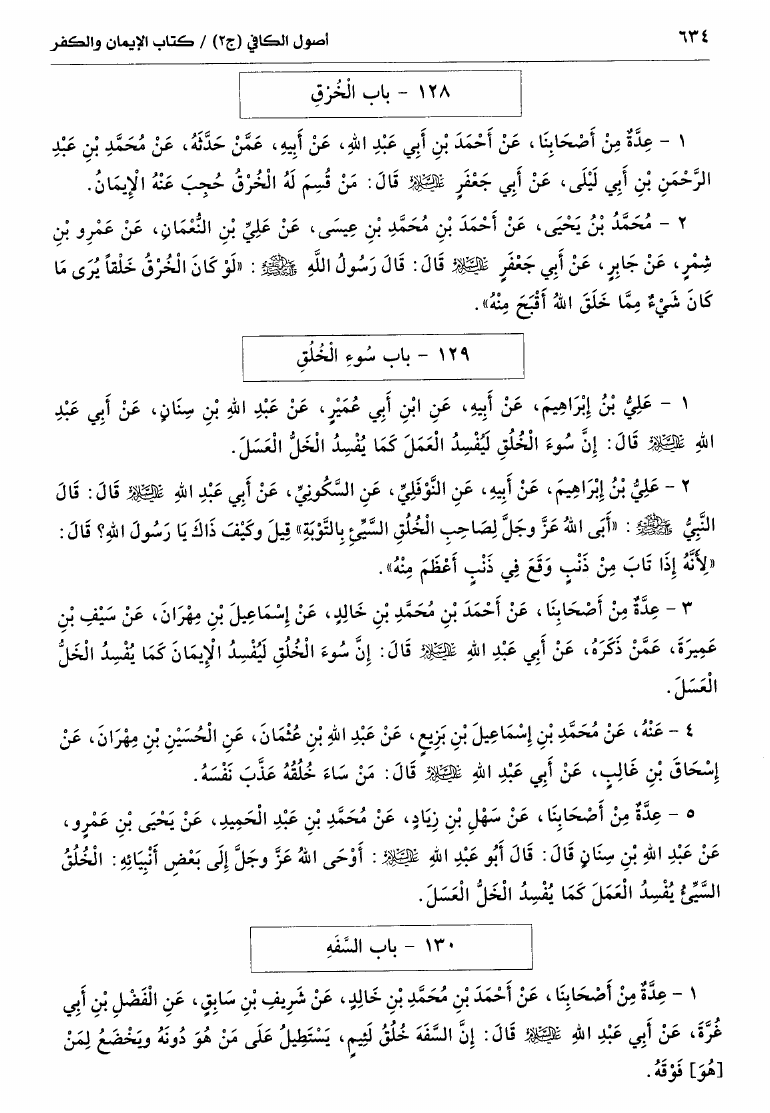 ٦٣٤
أصول الكافي (ج٢) / كتاب الإيمان والكفر
١٢٨ - باب الْخُرْقِ
١ - عِدَّةٌ مِنْ أَصْحَابِنَا، عَنْ أَحْمَدَ بْنِ أَبِي عَبْدِ اللهِ، عَنْ أَبِيهِ، عَمَّنْ حَدَّثَهُ، عَنْ مُحَمَّدِ بْنِ عَبْدِ
الرَّحْمَنِ بْنِ أَبِي لَيْلَى، عَنْ أَبِي جَعْفَرٍ عَلَيْهِ السَّلَامُ قَالَ: مَنْ قُسِمَ لَهُ الْخُرْقُ حُجِبَ عَنْهُ الْإِيمَانُ.
٢ - مُحَمَّدُ بْنُ يَحْيَى، عَنْ أَحْمَدَ بْنِ مُحَمَّدِ بْنِ عِيسَى، عَنْ عَلِيِّ بْنِ النُّعْمَانِ، عَنْ عَمْرِو بْنِ
شِمْرٍ، عَنْ جَابِرٍ، عَنْ أَبِي جَعْفَرٍ عَلَيْهِ السَّلَامُ قَالَ: قَالَ رَسُولُ اللَّهِ ﷺ: «لَوْ كَانَ الْخُرْقُ خَلْقاً يُرَى مَا
كَانَ شَيْءٌ مِمَّا خَلَقَ اللهُ أَقْبَحَ مِنْهُ».
١٢٩ - باب سُوءِ الْخُلُقِ
١ - عَلِيُّ بْنُ إِبْرَاهِيمَ، عَنْ أَبِيهِ، عَنِ ابْنِ أَبِي عُمَيْرٍ، عَنْ عَبْدِ اللهِ بْنِ سِنَانٍ، عَنْ أَبِي عَبْدِ
اللهِ عَلَيْهِ السَّلَامُ قَالَ: إِنَّ سُوءَ الْخُلُقِ لَيُفْسِدُ الْعَمَلَ كَمَا يُفْسِدُ الْخَلُّ الْعَسَلَ.
٢ - عَلِيُّ بْنُ إِبْرَاهِيمَ، عَنْ أَبِيهِ، عَنِ النَّوْفَلِيِّ، عَنِ السَّكُونِيِّ، عَنْ أَبِي عَبْدِ اللهِ عَلَيْهِ السَّلَامُ قَالَ: قَالَ
النَّبِيُّ ﷺ: «أَبَى اللهُ عَزَّ وجَلَّ لِصَاحِبِ الْخُلُقِ السَّيِّئِ بِالتَّوْبَةِ» قِيلَ وكَيْفَ ذَاكَ يَا رَسُولَ اللهِ؟ قَالَ:
«لِأَنَّهُ إِذَا تَابَ مِنْ ذَنْبٍ وَقَعَ فِي ذَنْبٍ أَعْظَمَ مِنْهُ».
٣ - عِدَّةٌ مِنْ أَصْحَابِنَا، عَنْ أَحْمَدَ بْنِ مُحَمَّدِ بْنِ خَالِدٍ، عَنْ إِسْمَاعِيلَ بْنِ مِهْرَانَ، عَنْ سَيْفِ بْنِ
عَمِيرَةَ، عَمَّنْ ذَكَرَهُ، عَنْ أَبِي عَبْدِ اللهِ عَلَيْهِ السَّلَامُ قَالَ: إِنَّ سُوءَ الْخُلُقِ لَيُفْسِدُ الْإِيمَانَ كَمَا يُفْسِدُ الْخَلُّ
الْعَسَلَ.
٤ - عَنْهُ، عَنْ مُحَمَّدِ بْنِ إِسْمَاعِيلَ بْنِ بَزِيعٍ، عَنْ عَبْدِ اللهِ بْنِ عُثْمَانَ، عَنِ الْحُسَيْنِ بْنِ مِهْرَانَ، عَنْ
إِسْحَاقَ بْنِ غَالِبٍ، عَنْ أَبِي عَبْدِ اللهِ عَلَيْهِ السَّلَامُ قَالَ: مَنْ سَاءَ خُلُقُهُ عَذَّبَ نَفْسَهُ.
٥ - عِدَّةٌ مِنْ أَصْحَابِنَا، عَنْ سَهْلِ بْنِ زِيَادٍ، عَنْ مُحَمَّدِ بْنِ عَبْدِ الْحَمِيدِ، عَنْ يَحْيَى بْنِ عَمْرٍو،
عَنْ عَبْدِ اللهِ بْنِ سِنَانٍ قَالَ: قَالَ أَبُو عَبْدِ اللهِ عَلَيْهِ السَّلَامُ: أَوْحَى اللهُ عَزَّ وجَلَّ إِلَى بَعْضِ أَنْبِيَائِهِ: الْخُلُقُ
السَّيِّئُ يُفْسِدُ الْعَمَلَ كَمَا يُفْسِدُ الْخَلُّ الْعَسَلَ.
١٣٠ - باب السَّفَهِ
١ - عِدَّةٌ مِنْ أَصْحَابِنَا، عَنْ أَحْمَدَ بْنِ مُحَمَّدِ بْنِ خَالِدٍ، عَنْ شَرِيفِ بْنِ سَابِقٍ، عَنِ الْفَضْلِ بْنِ أَبِي
غُرَّةَ، عَنْ أَبِي عَبْدِ اللهِ عَلَيْهِ السَّلَامُ قَالَ: إِنَّ السَّفَهَ خُلُقُ لَئِيمٍ، يَسْتَطِيلُ عَلَى مَنْ هُوَ دُونَهُ ويَخْضَعُ لِمَنْ
[هُوَ] فَوْقَهُ.